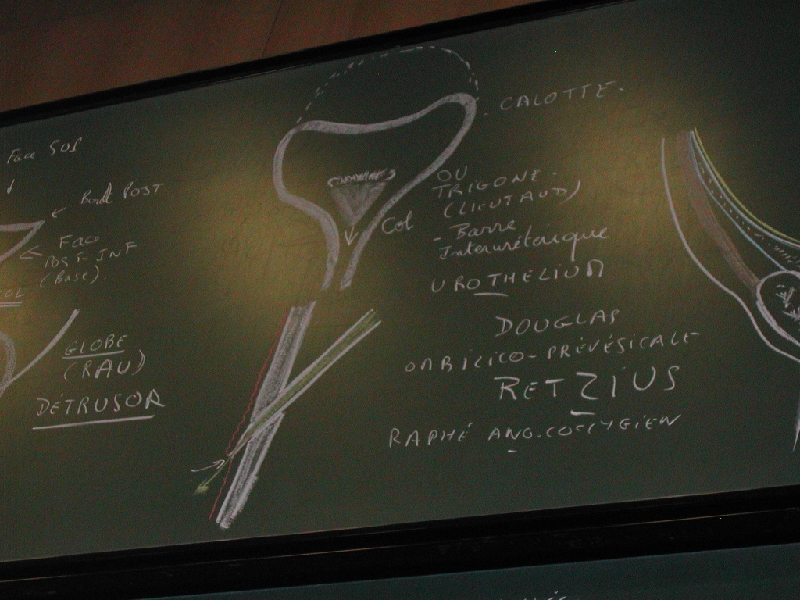 Face SUP
Bord POST
Face
POST INF
(Base)
COL
GLOBE
(RAU)
DETRUSOR
CALOTTE.
Col
OU
TRIGONE.
(LIEUTAUD)
- Barre
Interurétérique
UROTHELIUM
DOUGLAS
OMBILICO-PRÉVÉSICALE
RETZIUS
RAPHÉ ANO-COCCYGIEN